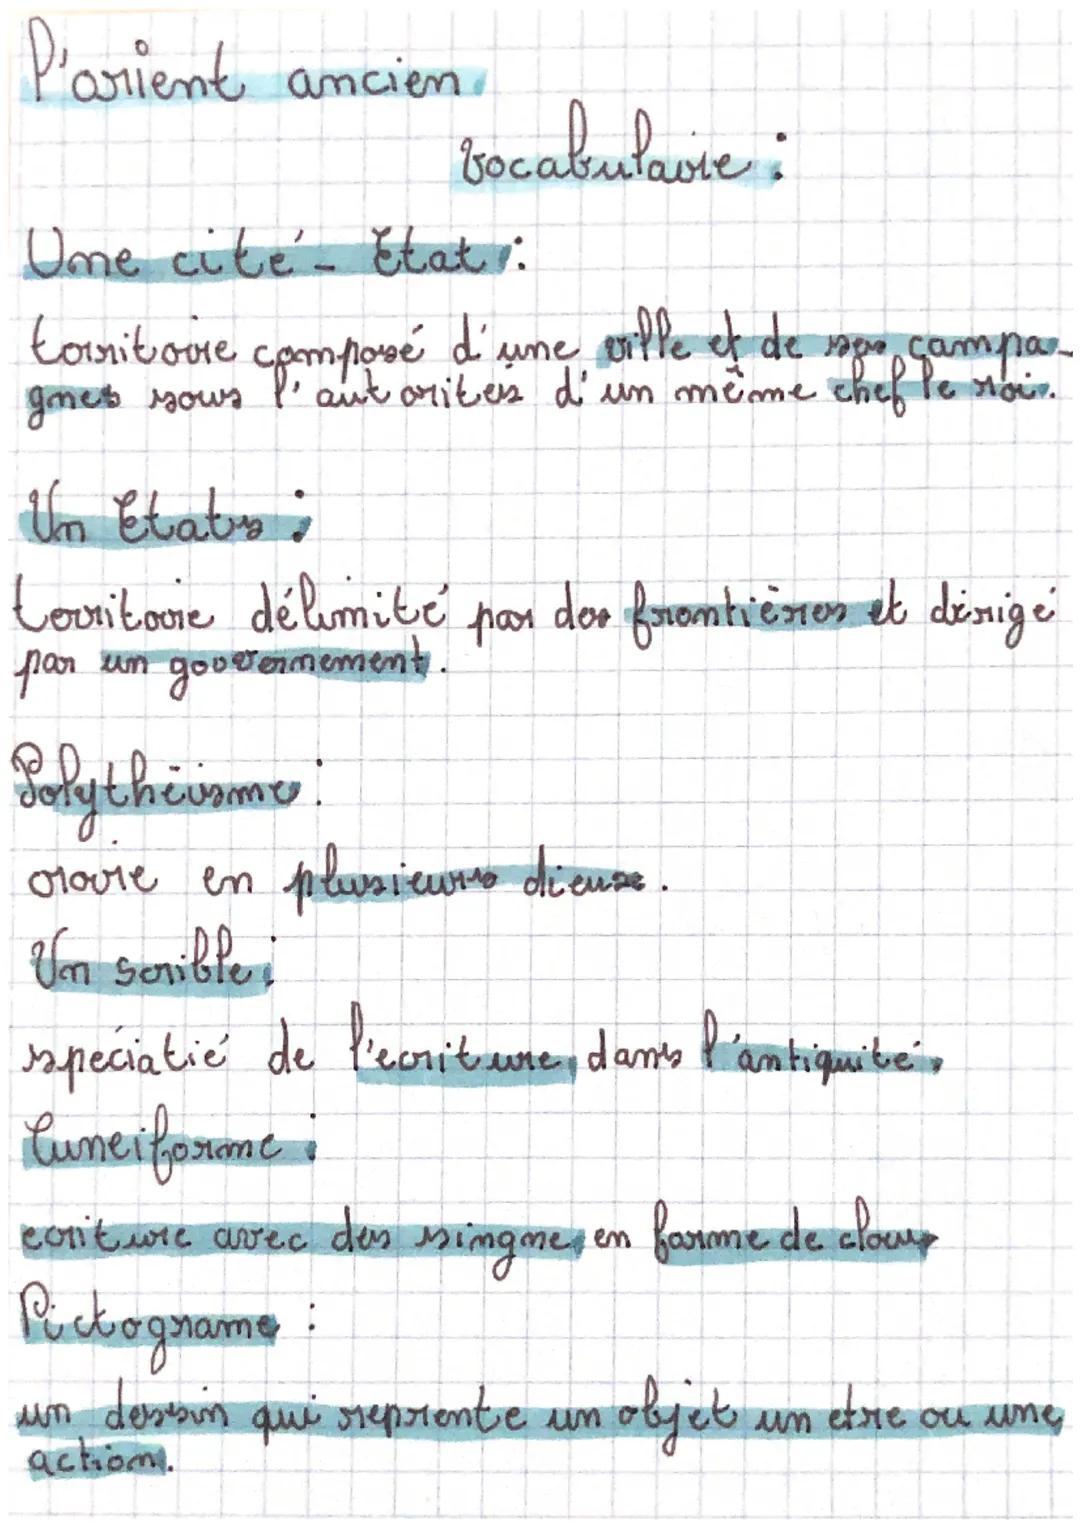 l'orient ancien
vocabulaire :
Une cité - Etat :
territoire composé d'une ville et de ses campa-
gnes sous l'autorités d'un même chef le roi.
Un Etats :
territoire délimité par des frontières et dirigé
par un gouvernement.
Polythéisme :
croire en plusieurs dieux.
Un scrible :
spéciatié de l'ecriture, dans l'antiquité,
Cuneiforme :
ecriture avec des singne, en forme de clous
Pictograme :
un dessin qui reprente un objet un etre ou une
action.